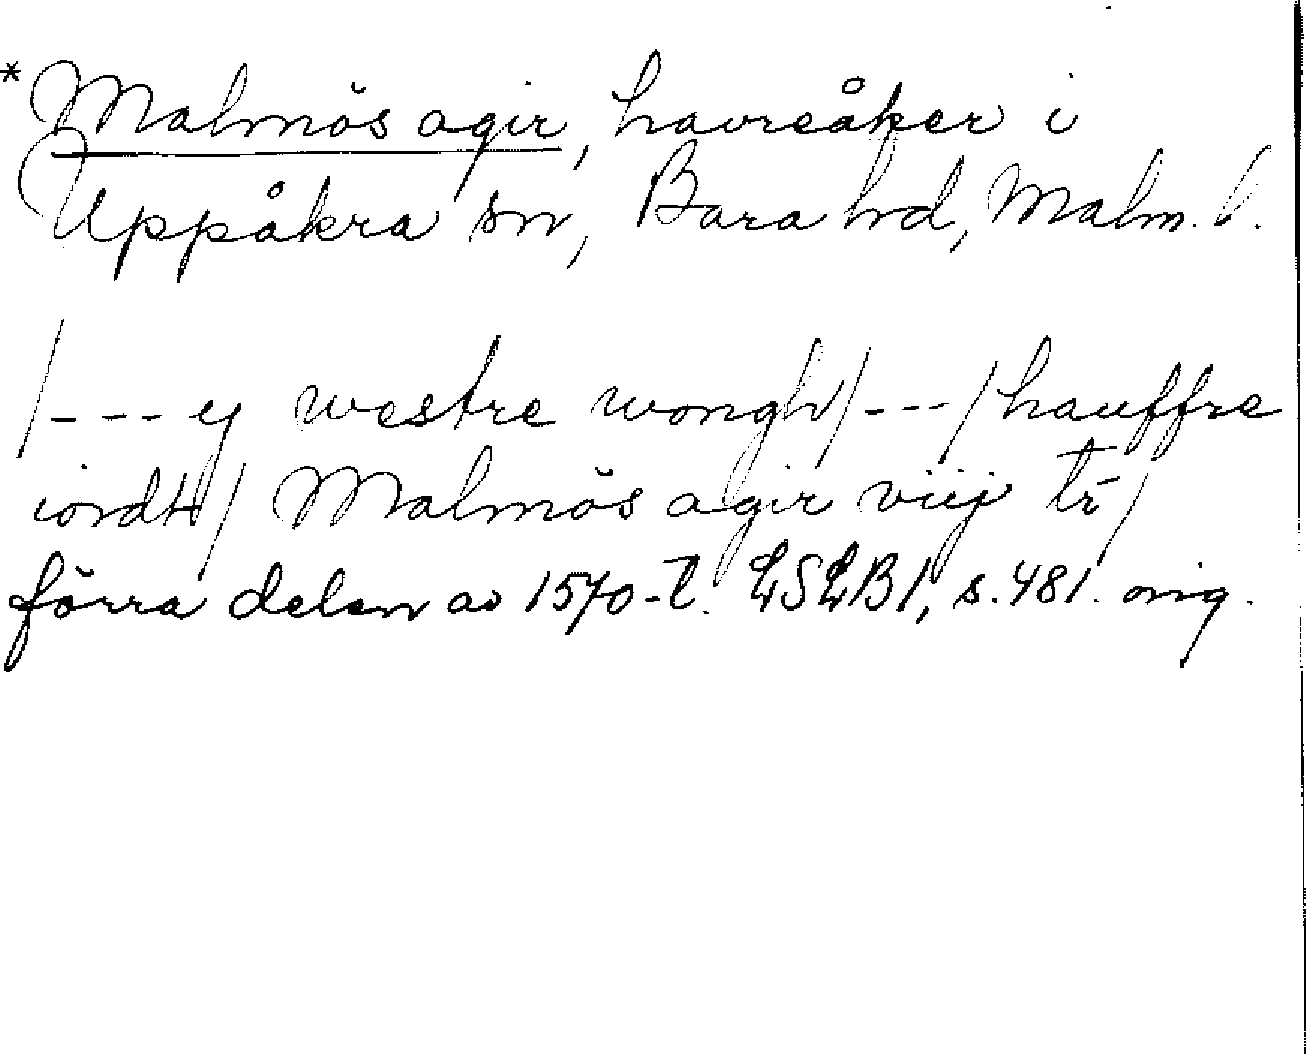 *Malmös agir, havreåker i
Uppåkra sn, Bara hd, Malm. l.
/--- ej westre wongh/---/hauffre
iordt/ Malmös agir viij tr/
förra delen av 1570-t. LSLB1, s. 481. orig.